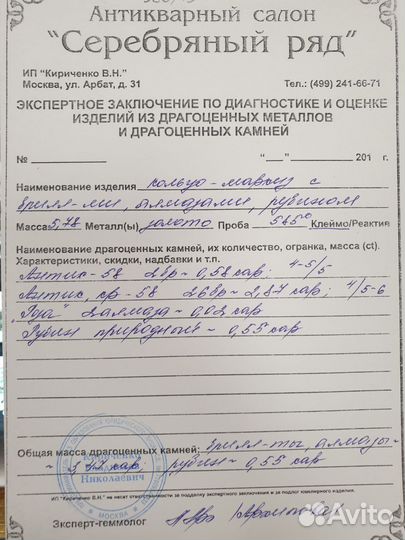 Антикварный салон
"Серебряный ряд"
ИП "Кириченко В.Н."
Москва, ул. Арбат, д. 31
Тел.: (499) 241-66-71
ЭКСПЕРТНОЕ ЗАКЛЮЧЕНИЕ ПО ДИАГНОСТИКЕ И ОЦЕНКЕ
ИЗДЕЛИЙ ИЗ ДРАГОЦЕННЫХ МЕТАЛЛОВ
И ДРАГОЦЕННЫХ КАМНЕЙ
№ "__" 201 г.
Наименование изделия кольцо-маркиз с
брилл-ми, алмазами, рубином
Масса 5,78 Металл(ы) золото Проба 585° Клеймо/Реактив
Наименование драгоценных камней, их количество, огранка, масса (ct).
Характеристики, скидки, надбавки и т.п.
Антик-58 2бр ~ 0,58 кар; 4-5/5
Антик, ср-58 26бр ~ 2,87 кар; 4/5-6
"Роза" 2алмаза ~ 0,02 кар
Рубин природный ~ 0,55 кар
Общая масса драгоценных камней: брилл-ты, алмазы
~ кар; рубин ~ 0,55 кар
Кириченко
Николаевич
МОСКВА
ИП "Кириченко В.Н." не несет ответственности за подделку экспертного заключения и за подлог ювелирного изделия.
Эксперт-геммолог
Avito